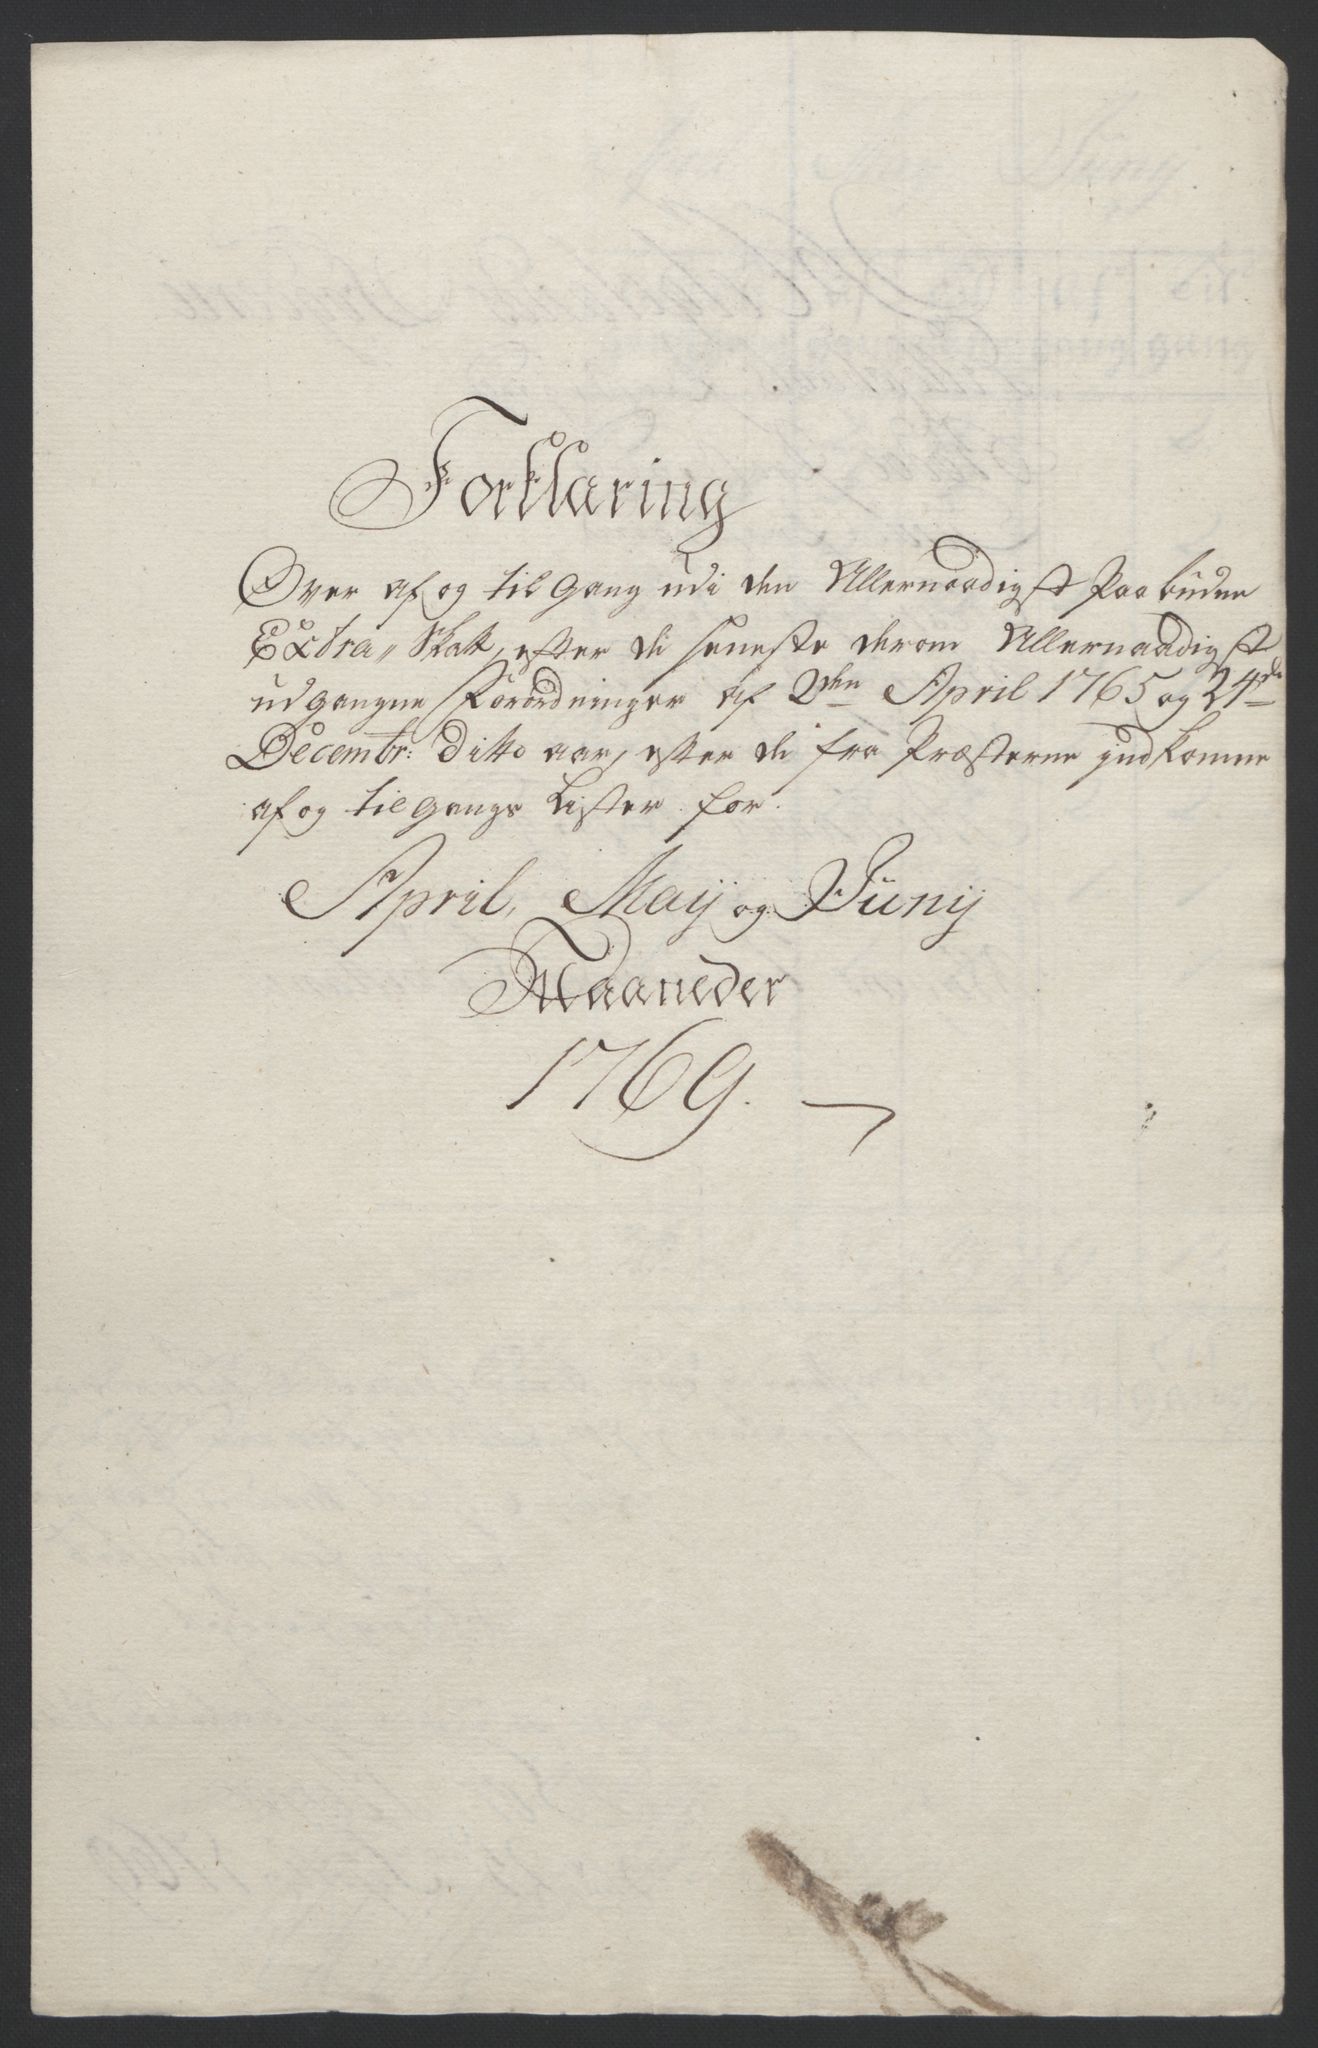 Forklaring
Over af og til Gang udi den Allernaadigst Paabudne
Extra,, Skatt, efter de seneste derom Allernaadigst
udgangne Forordninger af 2den April 1765 og 24de
Decembr: Ditto aar, efter de fra Præsterne indkomne
af og til Gangs Lister for.
April, Maij og Junij
Maaneder
1769.